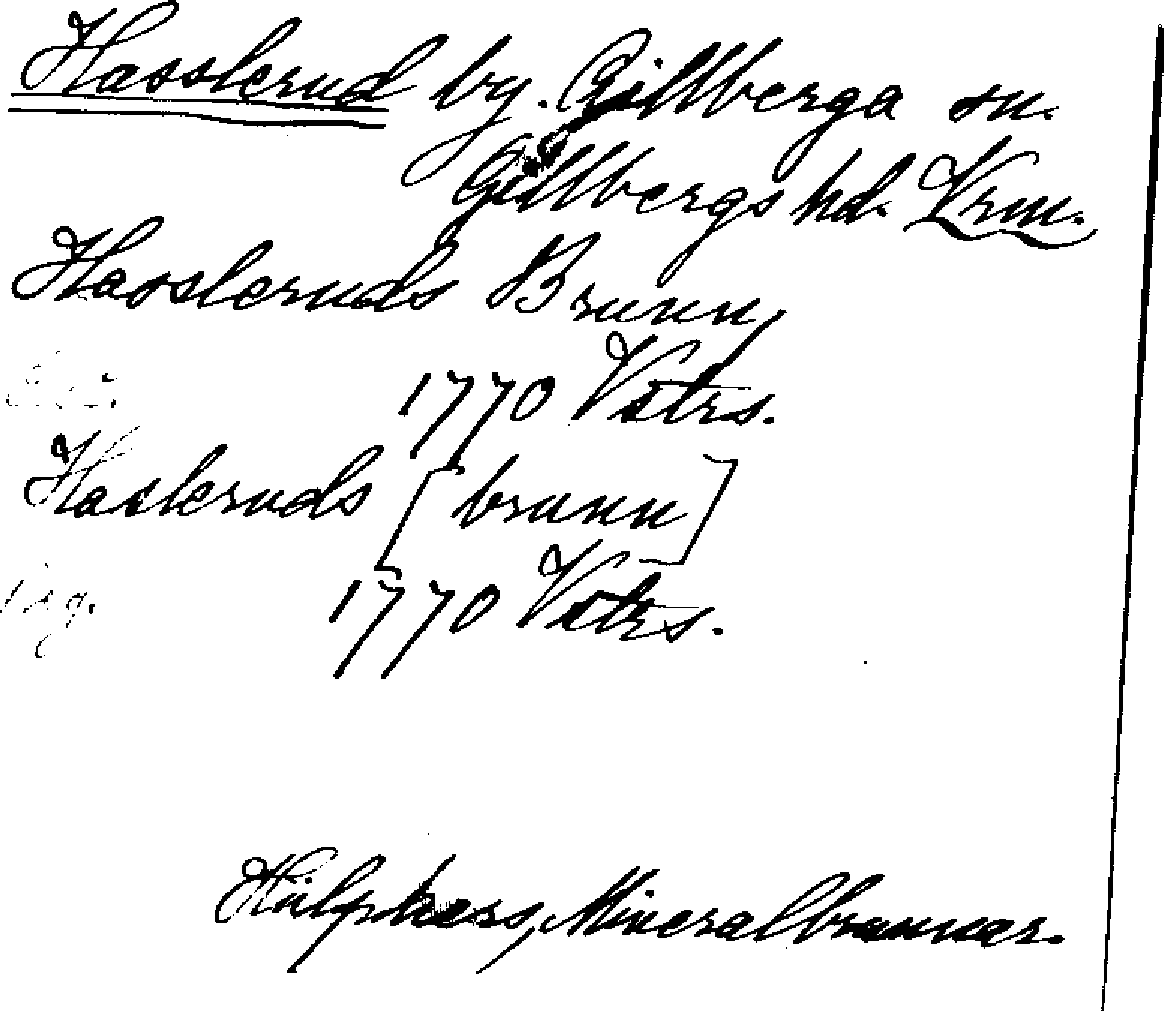 Hasslerud by. Gillberga sn.
Gillbergs hd. Vrm.
Hassleruds Brunn,
1770 Vstrs.
Hasleruds [brunn]
1770 Vstrs.
Hülphers, Mineralbrunnar.